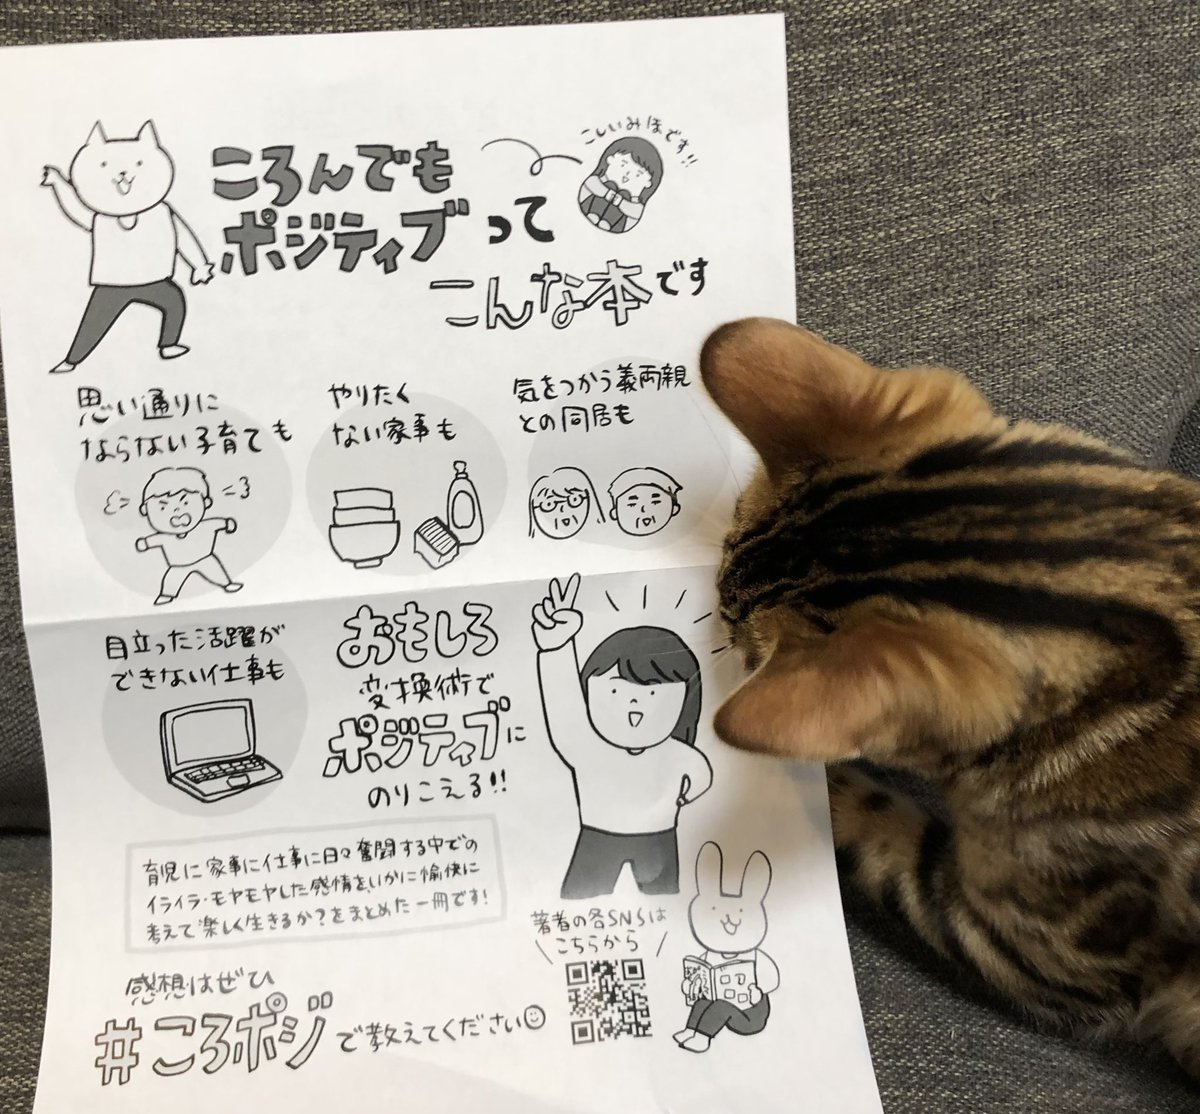 ころんでも
ポジティブって
こんな本です
こしいみほです!!
思い通りに
ならない子育ても
やりたく
ない家事も
気をつかう義両親
との同居も
目立った活躍が
できない仕事も
おもしろ
変換術で
ポジティブに
のりこえる!!
育児に家事に仕事に日々奮闘する中での
イライラ・モヤモヤした感情を、いかに愉快に
考えて楽しく生きるか?をまとめた一冊です!
著者の各SNSは
こちらから
感想はぜひ
#ころポジで教えてください